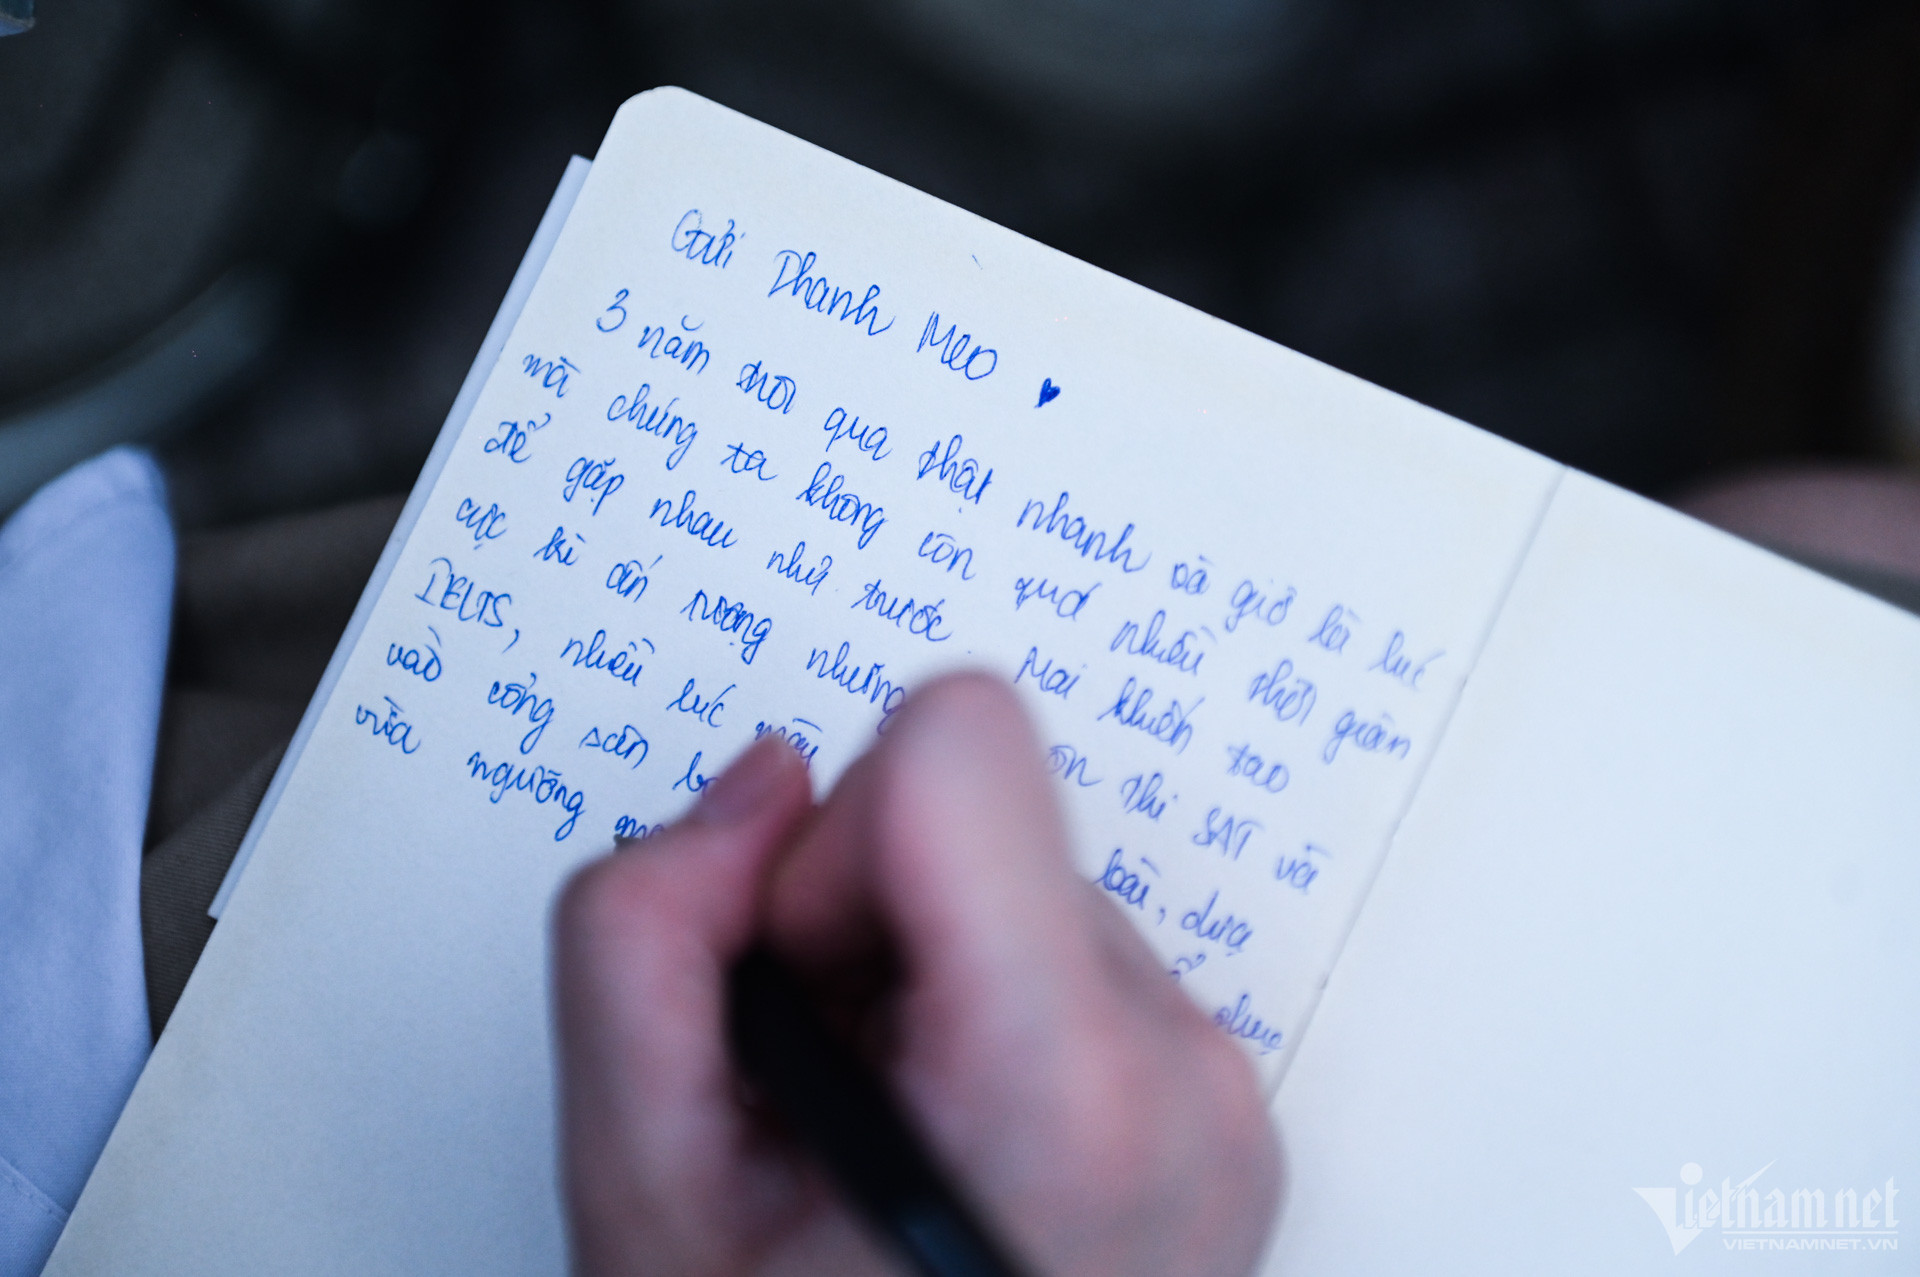 Gửi Thanh Meo
3 năm trôi qua thật nhanh và giờ là lúc
mà chúng ta không còn quá nhiều thời gian
để gặp nhau như trước. Mai khiến tao
cực kì ấn tượng những ôn thi SAT và
IELTS, nhiều lúc mày bài, dựa
vào công sân
vừa ngưỡng
Vietnamnet
VIETNAMNET.VN